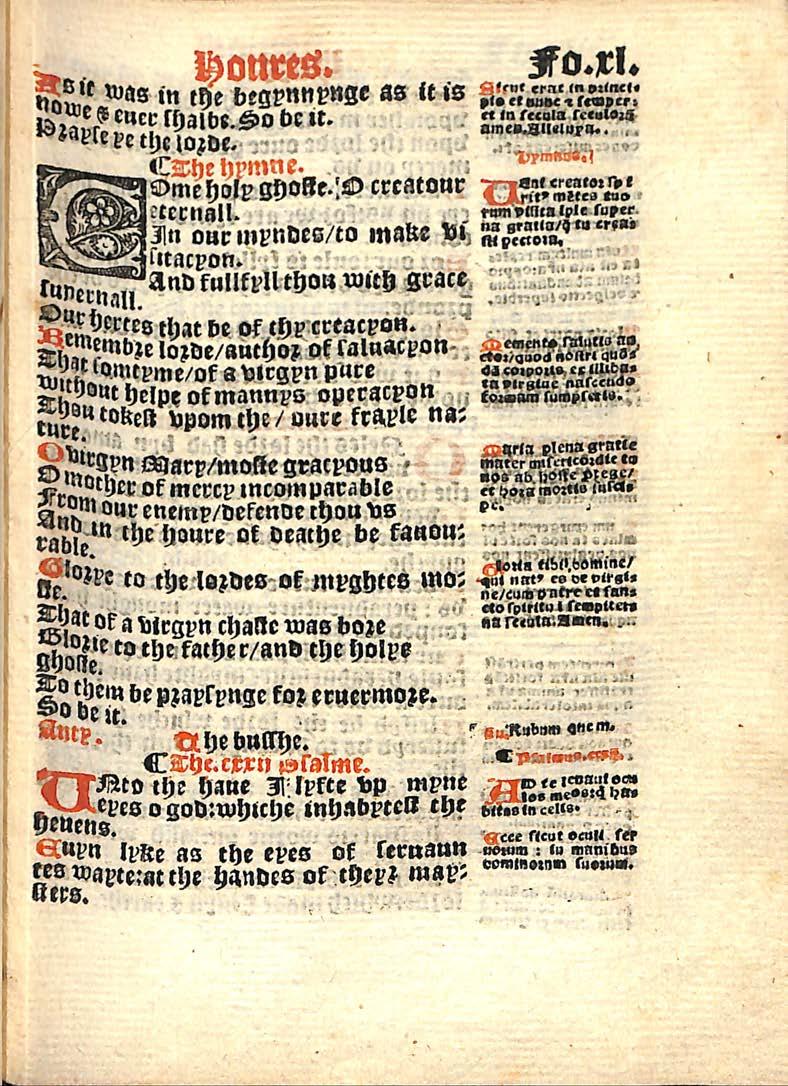 Houres.
Fo.xl.
As it was in the begynnynge as it is
nowe & euer shalbe. So be it.
Prayse ye the lorde.
¶The hymne.
COme holy ghoste. O creatour
eternall.
In our myndes/to make vi
sitacyon.
And fullfyll thou with grace
supernall.
Our hertes that be of thy creacyon.
Remembre lorde/author of saluacyon
That somtyme/of a virgyn pure
without helpe of mannys operacyon
Thou tokest vpom the/ oure frayle na⸗
ture.
O virgyn Mary/moste gracyous
O mother of mercy incomparable
From our enemy/defende thou vs
And in the houre of deathe be fauou⸗
rable.
Glorye to the lordes of myghtes mo⸗
ste.
That of a virgyn chaste was bore
Glorie to the father/and the holye
ghoste.
To them be praysynge for eruermore.
So be it.
Anty. The busshe.
¶The.cxxii Psalme.
UNto the haue I lyfte vp myne
eyes o god: whiche inhabytest the
heuens.
Euyn lyke as the eyes of seruaun
tes wayte: at the handes of theyr may⸗
sters.
Sicut erat in princi⸗
pio et nunc ⁊ semper:
et in secula seculorū
amen. Alleluya.
Hymnus.
UEni creator spi
ritꝰ mētes tuo
rum visita iple super
na gratia/q̄ tu creas
sti pectora.
Memento salutis au
ctor/quod nostri quō
dā corporis, ex illiba⸗
ta virgine nascendo
formam sumpseris.
Maria plena gratie
mater misericordie tu
nos ab hoste protege/
et hora mortis susci⸗
pe.
Gloria tibi domine/
qui natꝰ es de virgi⸗
ne/cum patre et san⸗
cto spiritu ī sempiter⸗
na secula. Amen.
an. Rubum quem.
¶ Psalmus.
AD te leuaui ocu
los meos: q̄ ha⸗
bitas in celis.
Ecce sicut oculi ser
uorum : in manibus
dominorum suorum.